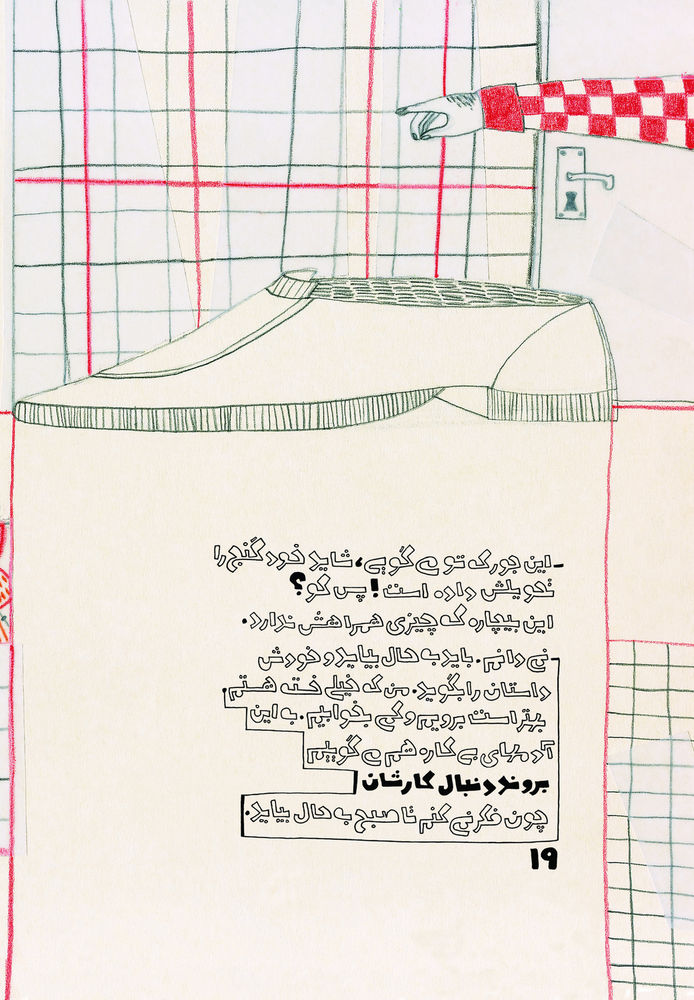 _این جور که تو می گویی، شاید خود گنج را
تحویلش داده است! پس کو؟
این بیچاره که چیزی همراهش ندارد.
_نمی دانم. باید به حال بیاید و خودش
داستان را بگوید. من که خیلی خسته هستم.
بهتر است برویم و کمی بخوابیم. به این
آدمهای بی کاره هم می گوییم
بروند دنبال کارشان
چون فکر نمی کنم تا صبح به حال بیاید.
۱۹